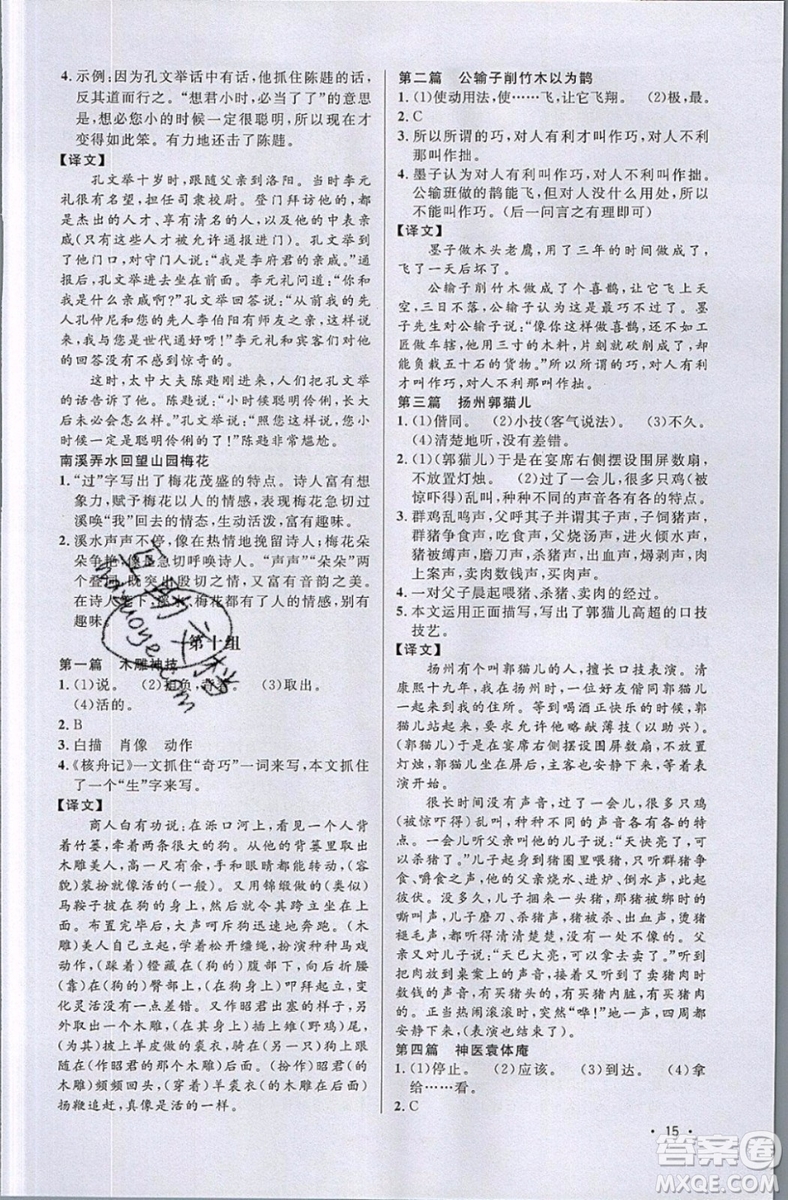 4. 示例:因为孔文举话中有话,他抓住陈韪的话,
反其道而行之。“想君小时,必当了了”的意思
是,想必您小的时候一定很聪明,所以现在才
变得如此笨。有力地还击了陈韪。
【译文】
孔文举十岁时,跟随父亲到洛阳。当时李元
礼很有名望,担任司隶校尉。登门拜访他的人都
是杰出的人才、享有清名的人,以及他的中表亲
戚(只有这些人才被允许通报进门)。孔文举到了
他的门口,对守门人说:“我是李府君的亲戚。”通
报后,进去坐在前面。李元礼问道:“您
和我是什么样的亲戚啊?”孔文举说:“从前我的先
人孔仲尼和您的先人李伯阳有师友之亲,这样说
来,我与您是世代通好呀!”李元礼和宾客们对他
的回答没有不感到惊奇的。
这时,太中大夫陈韪刚进来,人们把孔文举
的话告诉他,陈韪说:“小时候聪明伶俐的,长大
后未必会怎么样。”孔文举说:“照您这样说,您小
时候一定是聪明伶俐的了。”陈韪非常尴尬。
南溪弄水回望山园梅花
1. “过”字写出了梅花茂盛的特点。诗人富有想
象力,赋予梅花以人的情感,表现梅花急切过
溪唤“我”回去的情态,生动活泼,富有趣味。
2. 溪水声声不停,像在热情地挽留诗人;梅花朵
朵不同,似乎在急切呼唤诗人。“声声”“朵朵”两
个叠词,既突出
趣味。
第十组
第一篇 木雕神技
1. (1)说。 (2)担负,背着。 (3)取出。
(4)活的。
2. B
3. 白描 肖像 动作
4. 《核舟记》一文抓住“奇巧”一词来写,本文抓住
了一个“生”字来写。
【译文】
商人白有功说:在泺口河上,看到一个人背
着竹篓,牵着两条很大的狗。从背的篓里取出
木雕美人,高一尺有余,手和眼睛都能动,(容
貌)装扮就像活的(一般)。又用锦缎做的(类似)
马鞍子披在狗的身上,然后就令其跨坐在狗的
身上。布置完毕后,大声呵斥狗迅速地奔跑。(木
雕)美人自己起来,学着松开缰绳,扮演种种马戏
动作,(踩着)镫藏在(狗的)腹部下,(又)从(狗
的)腰部坠到尾部,(在狗的身上)叩拜起立,变
化灵活没有一点差错。又作昭君出塞的木雕,又
另外取出一个木雕,(在其身上)插上雉(野鸡)尾,
(给其)披上羊皮做的裘衣,(令其)骑狗跟从。(扮作)昭君的(木
雕)频频回头,(穿着)羊裘衣的(木雕)
扬鞭追赶,真像是活的一样。
第二篇 公输子削竹木以为鹊
1. (1)使动用法,使……飞,让它飞翔。 (2)极,最。
2. C
3. 所以所谓的巧,对人有利才叫作巧,对人不利
那叫作拙。
4. 墨子认为,对人有利才叫作巧,对人不利叫作拙。
公输班做的鹊能飞,但没什么用处,所以
不能叫作巧。(后一问言之有理即可)
【译文】
墨子做木头老鹰,用了三年的时间做成了,
飞了一天后坏了。
公输子削竹木做成了个喜鹊,让它飞上天
空,三日不落,公输子认为这是最巧不过了。墨
子先生对公输子说:“像你这样做喜鹊,还不如工
匠做车辖,他用三寸的木料,片刻就能削成,却
能负载五十石的货物。”所以所谓的巧,对人有利
才叫作巧,对人不利那叫作拙。
第三篇 扬州郭猫儿
1. (1)偕同。 (2)小技(客气说法)。 (3)不久。
(4)清楚地听,没有差错。
2. (1)(郭猫儿)于是在宴席右侧摆设围屏数扇,
不放置灯烛。 (2)过了一会儿,很多只鸡(被
惊吓得)乱叫,种种不同的声音各有各的特点。
3. 群鸡乱鸣声,父呼其子并谓其子声,子饲猪声,
群猪争食声,吃食声,父烧汤声,进炉倾水声,
缚猪被缚声,磨刀声,杀猪声,出血声,燖剥声,肉
上案声,买卖数钱声,买肉声。
4. 一对父子黑晨起喂猪、杀猪卖肉的经过。
5. 本文运用正面描写,写出了郭猫儿高超的口技
技艺。
【译文】
扬州有个叫郭猫儿的人,擅长口技技艺。清
康熙十九年,我在扬州,一个朋友偕同郭猫儿一
起来到我的住所。等到喝酒正快乐的时候,郭猫
儿站起来,要求允许他略献薄技(以助兴)。(郭
猫儿)于是在宴席右侧摆设围屏数扇,不放置
灯烛,郭猫儿坐在屏后,主客安静地坐着听他表
演开始。
很长时间没有声音,过了一会儿,很多只鸡
(被惊吓得)乱叫,种种不同的声音各有各的特
点。一会儿听父亲叫他的儿子说:“天快亮了,可
以杀猪了。”儿子起来到猪圈里喂猪,听到群猪争
食、嚼食的声音,他的父亲烧水、进炉、倒水的声音
。没多久,儿子便捆来一头猪,猪被捆得
叫的声音,儿子磨刀、杀猪的声音,猪出血、烫猪
褪毛声,都听得清清楚楚,一点也没有差错。
父亲又对儿子说:“天已大亮,可以卖了。”听到
把猪肉放上案桌的声音,一会儿就听到卖猪肉时
数钱的声音,有买猪头的,有买猪内脏的,有买猪
肉的。正当热闹滚滚时,“哗!”四周全都
安静下来,(表演突然结束了)。
第四篇 神医袁体庵
1. (1)停止。 (2)应该。 (3)到达。 (4)拿
给……看。
2. C
· 15 ·
答案圈
MXQE.COM